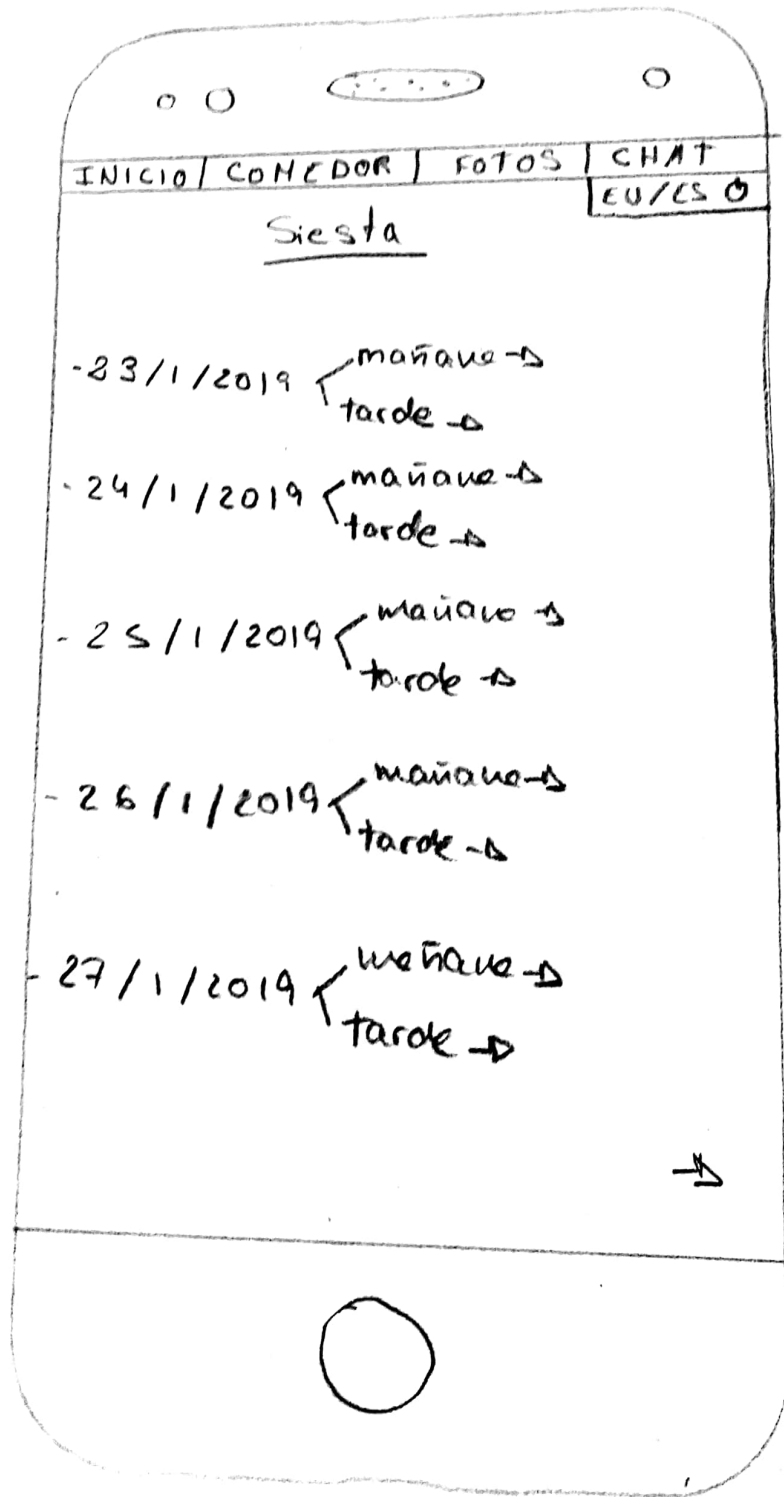 INICIO | COMEDOR | FOTOS | CHAT
EU/ES
Siesta
-23/1/2019 mañana →
tarde →
- 24/1/2019 mañana →
tarde →
- 25/1/2019 mañana →
tarde →
- 26/1/2019 mañana →
tarde →
- 27/1/2019 mañana →
tarde →
→